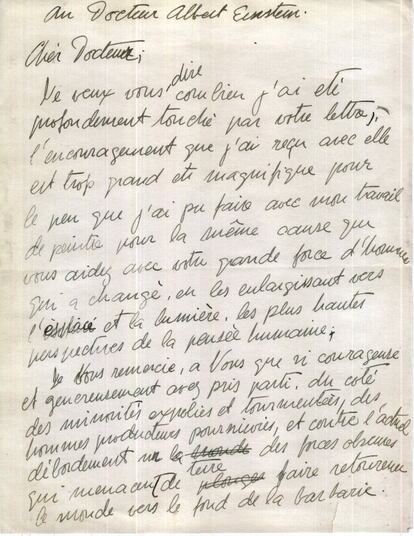 au Docteur Albert Einstein.
Cher Docteur;
Je veux vous dire combien j'ai eté
profondement touché par votre lettre;
l'encouragement que j'ai reçu avec elle
est trop grand et magnifique pour
le peu que j'ai pu faire avec mon travail
de peintre pour la même cause que
vous aidez avec votre grande force d'homme
qui a changé, en les enlargissant vers
l'espace et la lumière, les plus hautes
perspectives de la pensée humaine.
Je Vous remercie, a Vous que si courageuse
et genereusement avez pris parti, du coté
des minorités expoliés et tourmentées, des
hommes producteurs poursuivies, et contre l'actuel
débordement sur la monde des forces obscures
qui menacent de plonger faire retourner
le monde vers le fond de la barbarie.